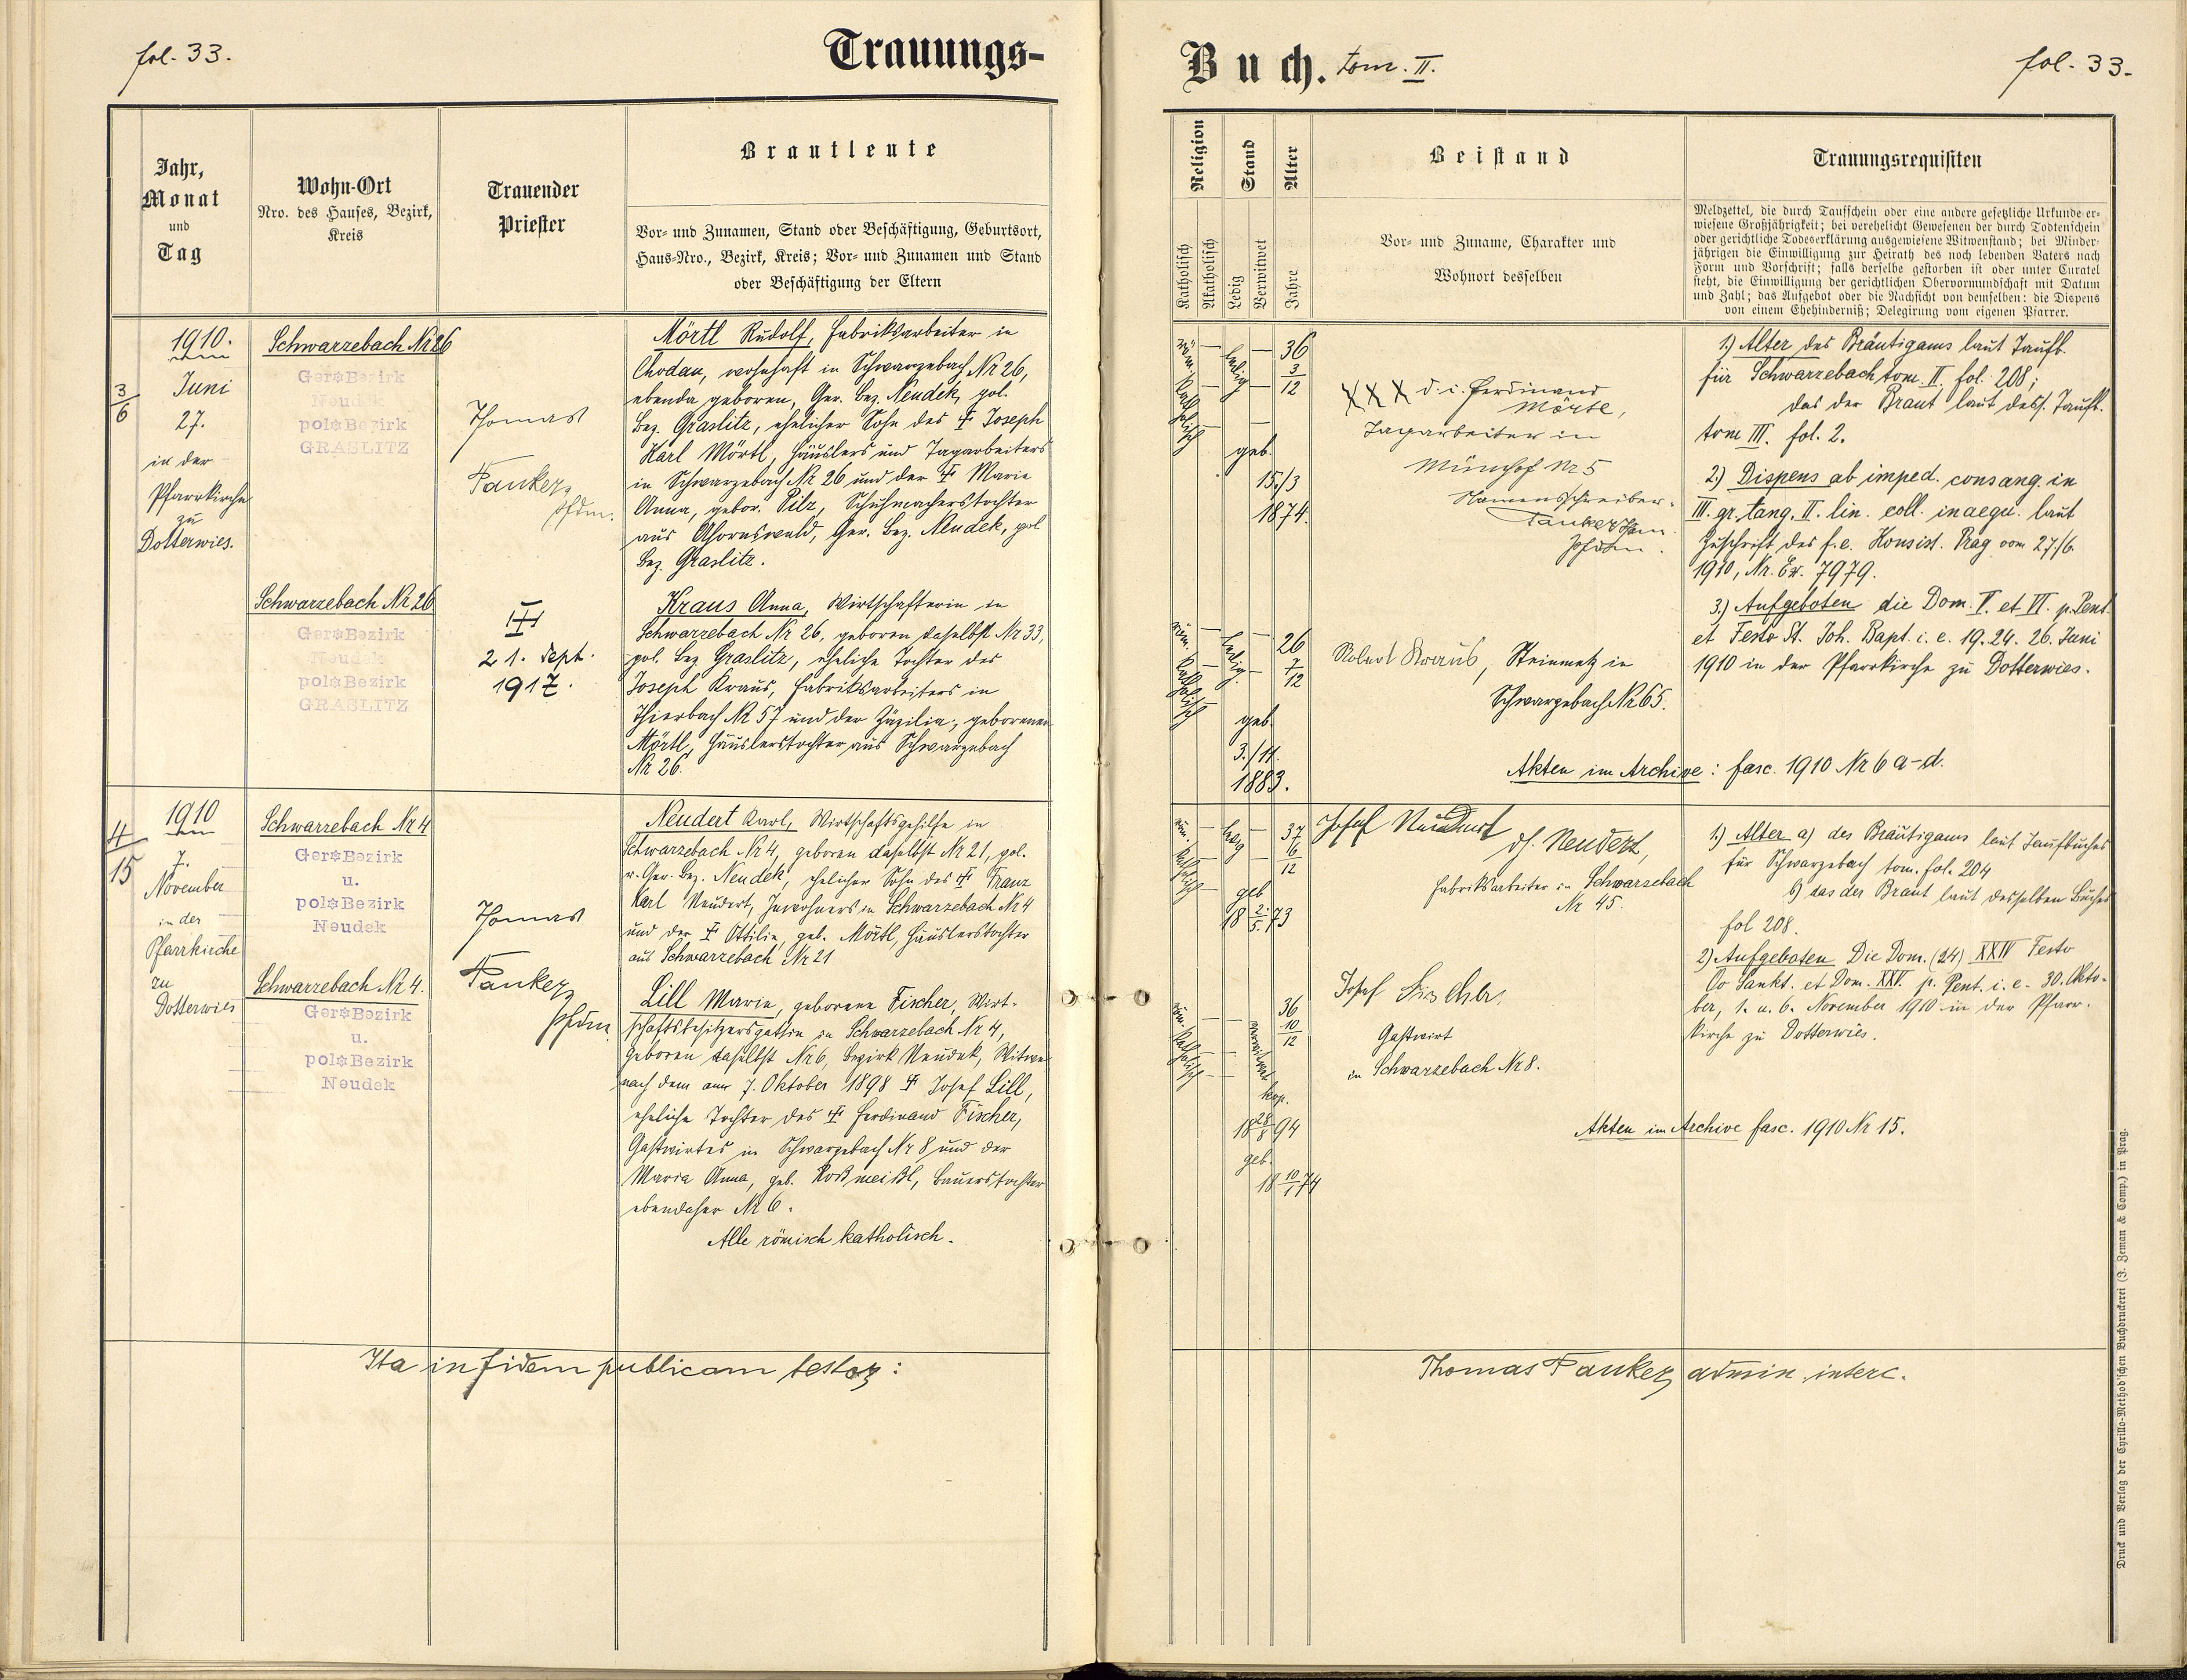 fol. 33.
Trauungs-
Jahr,
Monat
und
Tag
Wohn-Ort
Nro. des Hauses, Bezirk,
Kreis
Trauender
Priester
Brautleute
Vor- und Zunamen, Stand oder Beschäftigung, Geburtsort,
Haus-Nro., Bezirk, Kreis; Vor- und Zunamen und Stand
oder Beschäftigung der Eltern
1910.
3/6
Juni
27.
in der
Pfarrkirche
zu
Dotterwies.
Schwarzebach Nr 26
Ger. Bezirk
Neudek
pol. Bezirk
GRASLITZ
Thomas
Fanker,
Pfdm.
Mörtl Rudolf, Fabriksarbeiter in
Chodau, wohnhaft in Schwarzebach Nr 26,
ebenda geboren, Ger. Bez. Neudek, pol.
Bez. Graslitz, ehelicher Sohn des † Joseph
Karl Mörtl, Häuslers und Tagarbeiters
in Schwarzebach Nr 26 und der † Marie
Anna, gebor. Pilz, Schuhmacherstochter
aus Ahornswald, Ger. Bez. Neudek, pol.
Bez. Graslitz.
Schwarzebach Nr 26
Ger. Bezirk
Neudek
pol. Bezirk
GRASLITZ
†
21. Sept.
1917.
Kraus Anna, Wirtschafterin in
Schwarzebach Nr 26, geboren daselbst Nr 33,
pol. Bez Graslitz, eheliche Tochter des
Joseph Kraus, Fabriksarbeiters in
Thierbach Nr 57 und der Zäzilia, geborenen
Mörtl, Häuslerstochter aus Schwarzebach
Nr 26.
1910
4/15
7.
November
in der
Pfarrkirche
zu
Dotterwies
Schwarzebach Nr 4
Ger. Bezirk
u.
pol. Bezirk
Neudek
Thomas
Fanker,
Pfdm.
Neudert Karl, Wirtschaftsgehilfe in
Schwarzebach Nr 4, geboren daselbst Nr 21, pol.
u. Ger. Bez. Neudek, ehelicher Sohn des † Franz
Karl Neudert, Inwohners in Schwarzebach Nr 4
und der † Ottilie, geb. Mörtl, Häuslerstochter
aus Schwarzebach Nr 21
Schwarzebach Nr 4.
Ger. Bezirk
u.
pol. Bezirk
Neudek
Lill Marie, geborene Fischer, Wirt-
schaftsbesitzersgattin in Schwarzebach Nr 4,
geboren daselbst Nr 6, Bezirk Neudek, Witwe
nach dem am 7. Oktober 1898 † Josef Lill,
eheliche Tochter des † Ferdinand Fischer,
Gastwirtes in Schwarzebach Nr 8 und der
Maria Anna, geb. Roßmeißl, Bauerstochter
ebendaher Nr 6.
Alle römisch katholisch.
Ita in fidem publicam testor:
Buch. tom. II.
fol. 33.
Religion
Katholisch
Akatholisch
Stand
Ledig
Verwitwet
Alter
Jahre
Beistand
Vor- und Zuname, Charakter und
Wohnort desselben
Trauungsrequisiten
Meldzettel, die durch Taufschein oder eine andere gesetzliche Urkunde er-
wiesene Großjährigkeit; bei verehelicht Gewesenen der durch Todtenschein
oder gerichtliche Todeserklärung ausgewiesene Witwenstand; bei Minder-
jährigen die Einwilligung zur Heirath des noch lebenden Vaters nach
Form und Vorschrift; falls derselbe gestorben ist oder unter Curatel
steht, die Einwilligung der gerichtlichen Obervormundschaft mit Datum
und Zahl; das Aufgebot oder die Nachsicht von demselben: die Dispens
von einem Ehehinderniß; Delegirung vom eigenen Pfarrer.
röm. katholisch
ledig
36 3/12
geb.
15./3
1874.
XXX d. i. Ferdinand
Mörtl,
Tagarbeiter in
Münchhof Nr 5
Namensschreiber:
Fanker Thom.
Pfdm.
1.) Alter des Bräutigams laut Taufb.
für Schwarzebach tom. II. fol. 208;
das der Braut laut dess. Taufb.
tom III. fol. 2.
2.) Dispens ab imped. consang. in
III. gr. tang. II. lin. coll. inaequ. laut
Zuschrift des f. e. Konsist. Prag vom 27./6.
1910, Nr. Ex. 7979.
3.) Aufgeboten die Dom. V. et VI. p. Pent.
et Festo St. Joh. Bapt. i. e. 19. 24. 26. Juni
1910 in der Pfarrkirche zu Dotterwies.
röm. katholisch
ledig
26 7/12
geb.
3./11.
1883.
Robert Kraus, Steinmetz in
Schwarzebach Nr 65.
Akten im Archive: fasc. 1910 Nr 6 a-d.
röm. katholisch
ledig
37 6/12
geb
18 2./5. 73
Josef Neudert
d. i. Neudert,
Fabriksarbeiter in Schwarzebach
Nr 45.
1.) Alter a) des Bräutigams laut Taufbuches
für Schwarzebach tom. fol. 204
b) das der Braut laut desselben Buches
fol 208.
2) Aufgeboten Die Dom. (24) XXIV Festo
Oo Sankt. et Dom. XXV. p. Pent. i. e. 30. Okto-
ber, 1. u. 6. November 1910 in der Pfarr-
kirche zu Dotterwies.
röm. katholisch
verwitwet
36 10/12
kop.
18 28/8 94
geb.
18 10/1 74
Josef Fischer,
Gastwirt
in Schwarzebach Nr 8.
Akten im Archive fasc. 1910 Nr 15.
Thomas Fanker, admin. interc.
Druck und Verlag der Cyrillo-Method'schen Buchdruckerei (J. Zeman & Comp.) in Prag.